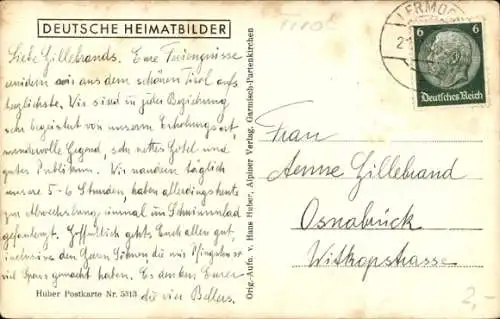 DEUTSCHE HEIMATBILDER
Tirol
LERMOO
6 6
Deutsches Reich
Liebe Hillebrands. Eure Feriengrüsse
erwidern wir aus dem schönen Tirol aufs
herzlichste. Wir sind in jeder Beziehung
sehr begeistert von unserem Erholungsort,
wundervolle Gegend, sehr nettes Hotel und
gutes Publikum. Wir wandern täglich
unsere 5-6 Stunden, haben allerdings heute
zur Abwechslung einmal im Schwimmbad
gefaulenzt. Hoffentlich gehts Euch allen gut,
inclusive den Garn Sonnen die uns Pfingsten so
viel Spass gemacht haben. Es denken Eurer
die vier Bellers.
Huber Postkarte Nr. 5313
Orig.-Aufn. v. Hans Huber, Alpiner Verlag, Garmisch-Partenkirchen
Frau
Aenne Hillebrand
Osnabrück
Witkopstrasse
2,-